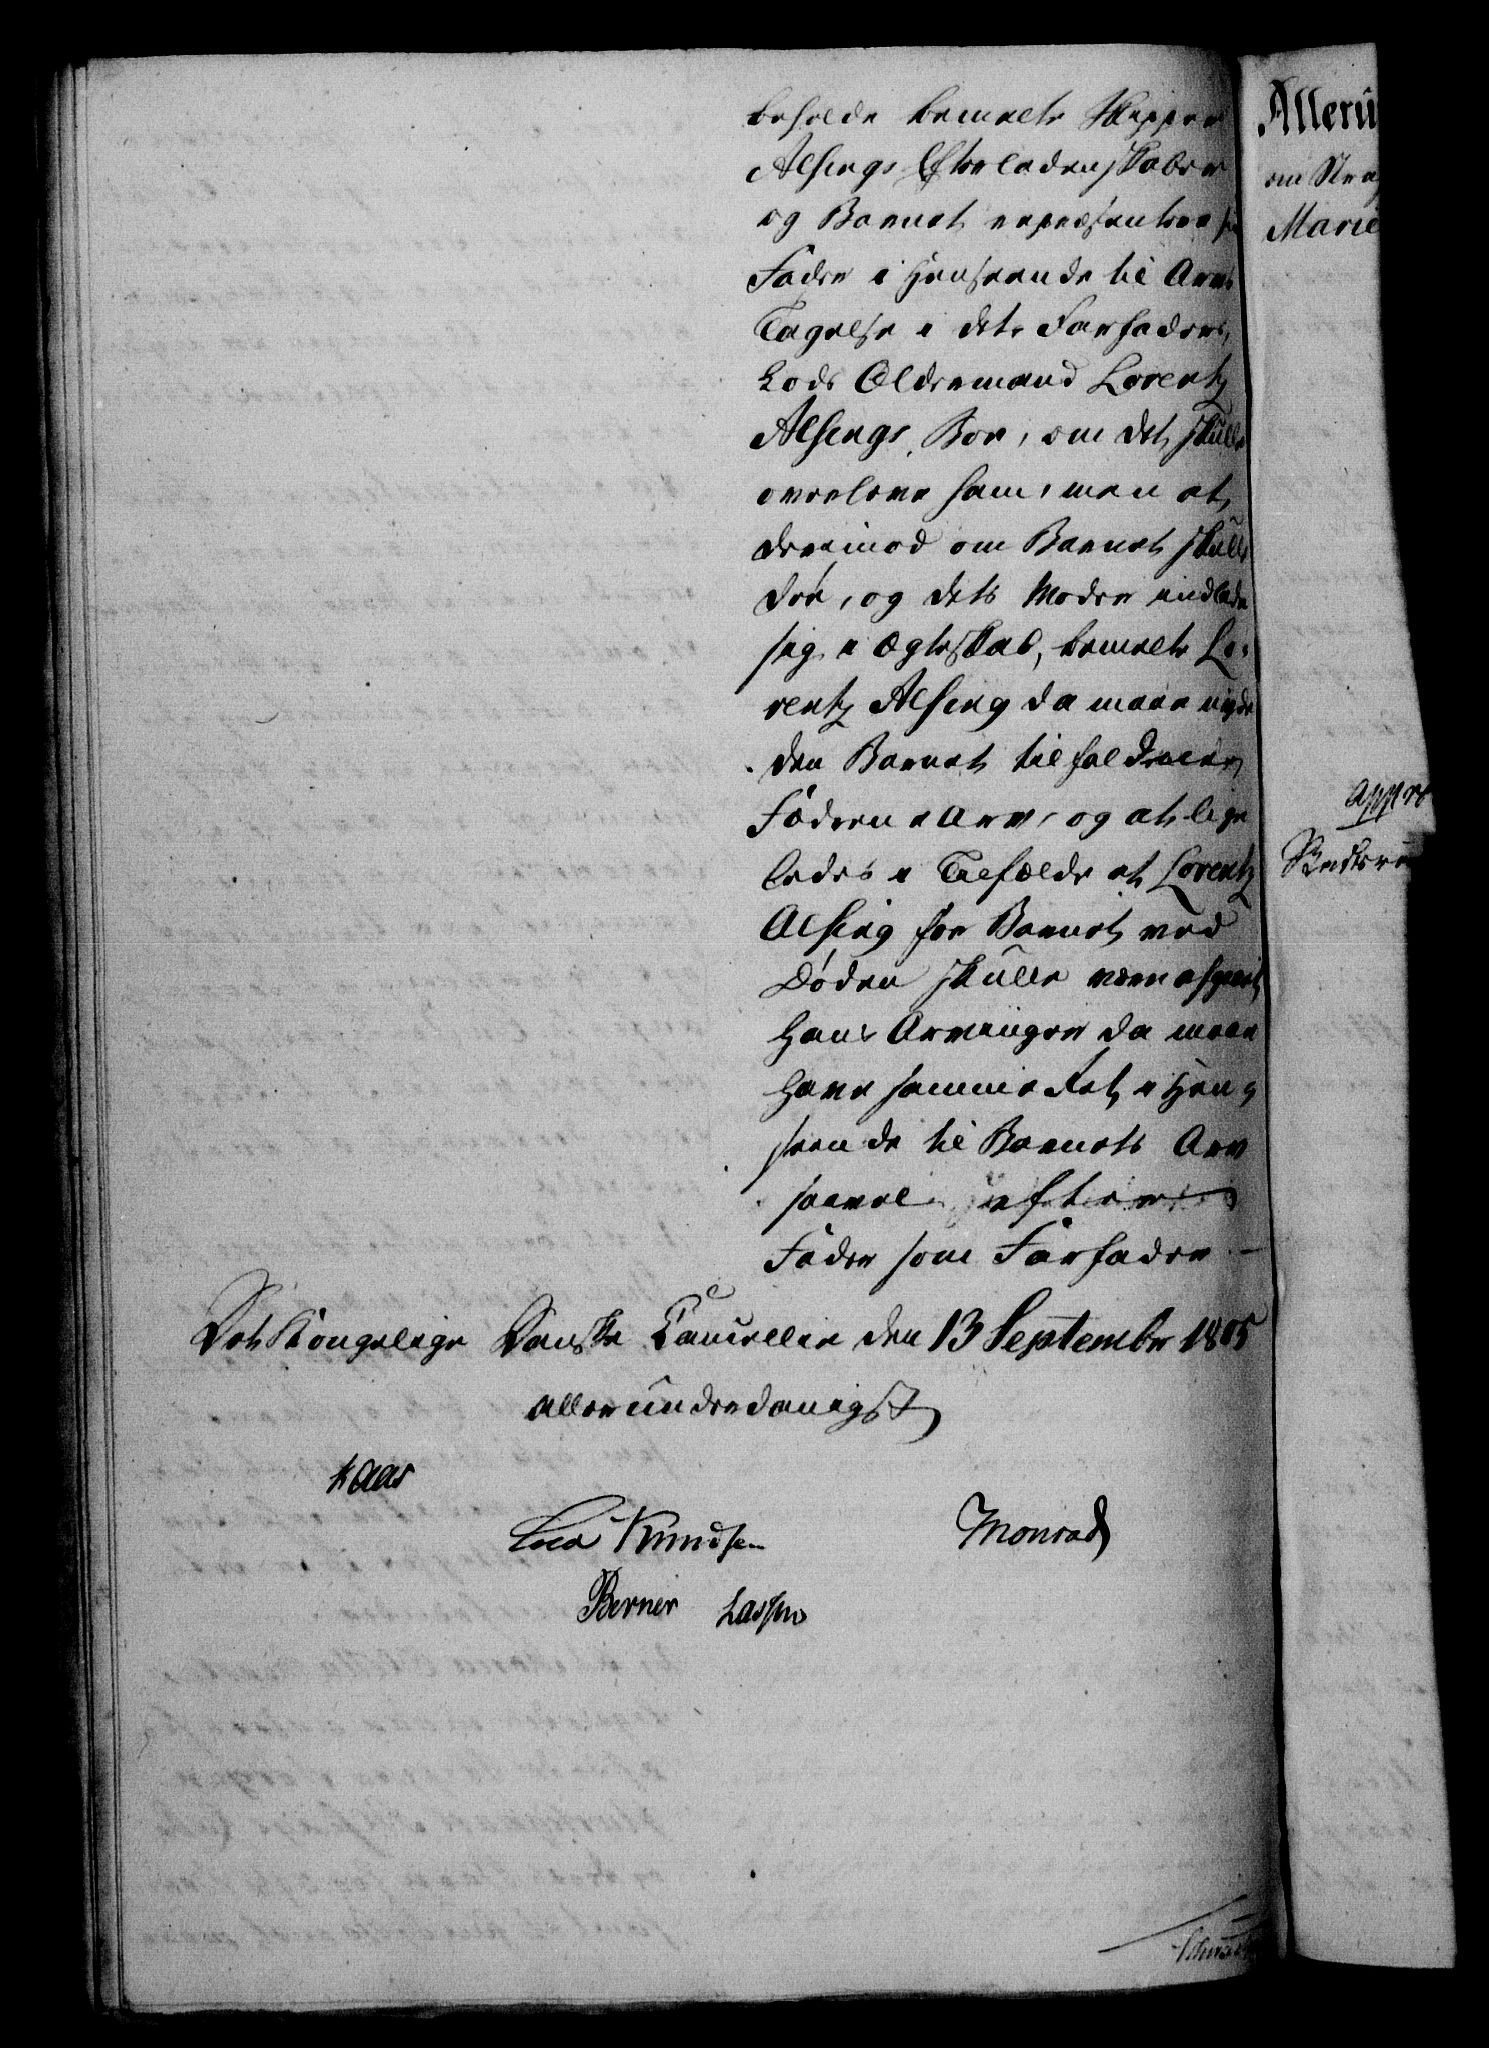 beholde bemelte Skipper
Alsings Efterladenskaber
og Barnet repræsentere sin
Fader i Henseende til Arvs
Tagelse i dets Farfaders,
Lods Oldermand Lorentz
Alsings Boe, om det skulle
overleve ham, men at
derimod om Barnet skulle
döe, og dets Moder indlade
sig i Ægteskab, bemelte Lo-
rentz Alsing da maae nyde
den Barnet tilfaldne
Födrene Arv, og at lige
ledes i Tilfælde at Lorentz
Alsing för Barnet ved
Döden skulle være afgaaet
Hans Arvinger da maae
have samme Ret i Hen-
seende til Barnets Arv
saavel efter
Fader som Farfader. —
Det Kongelige Danske Cancellie den 13 September 1805
allerunderdanigst
Kaas
Knudsen Monrad
Berner Lassen
Allerü
om
Marie